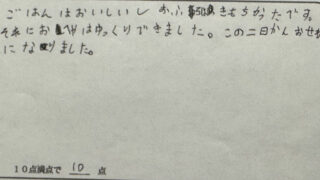 ごはんはおいしいし おふろはきもちかったです。
それにおへやはゆっくりできました。この二日かんおせわ
になりました。
10点満点で 10 点